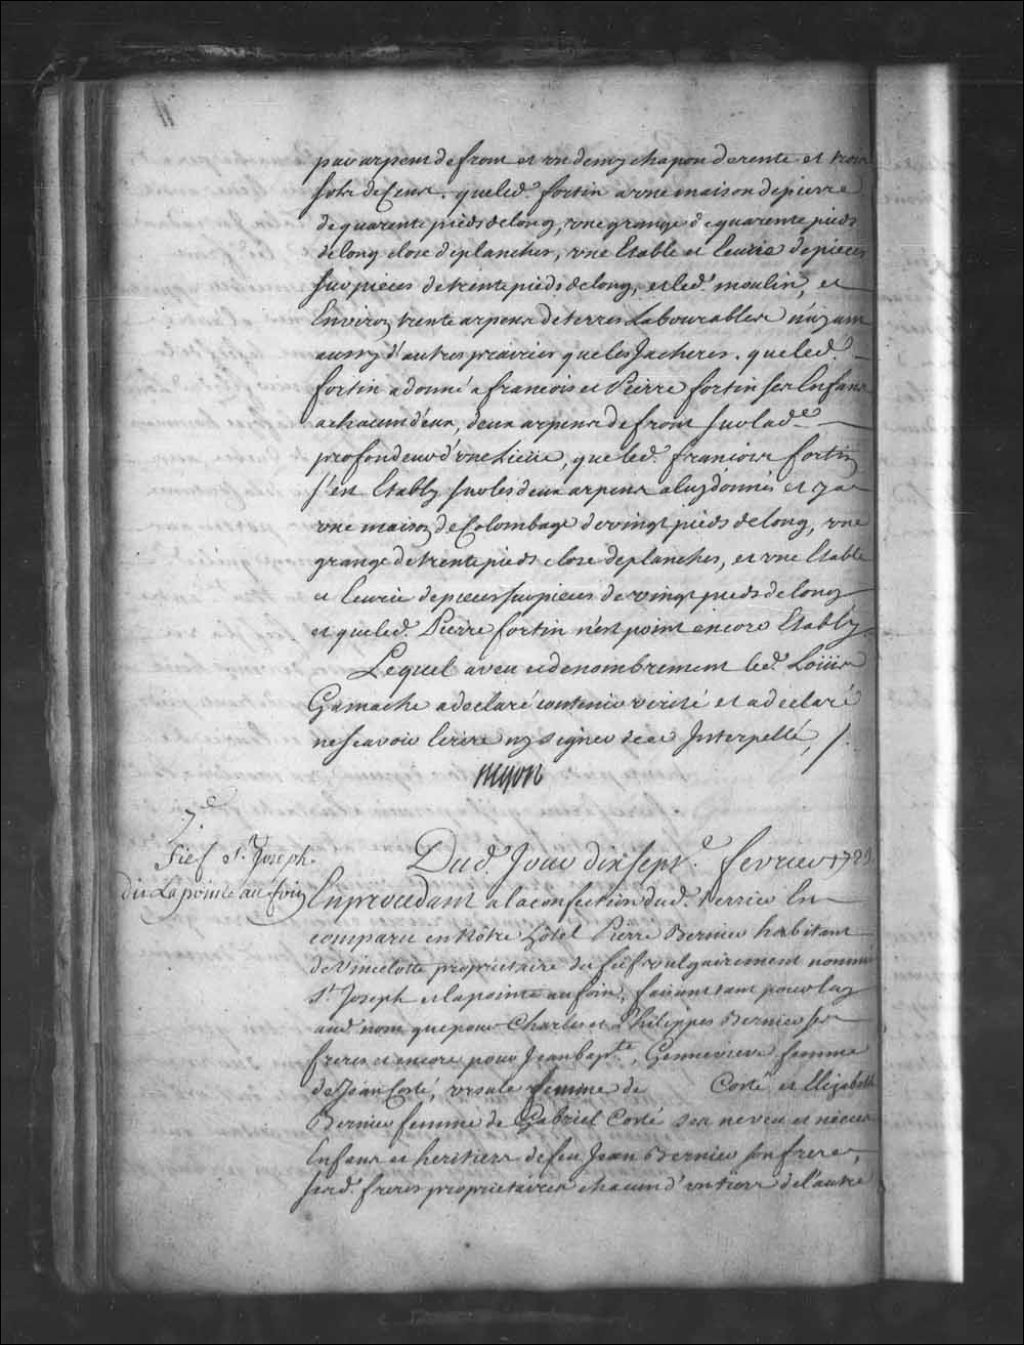 par arpent de front et un demy chapon de rente et trois
sols de Cens. que led. fortin a vne maison de pierre
de quarente pieds de long, vne grange de quarente pieds
de long close de planches, vne Etable et Ecurie de pieces
sur pieces de trente pieds de long, et led. moulin, et
Environ trente arpens de terres Labourables n'ayant
aussy d'autres prairies que les Jacheres. que led.
fortin a donné a francois et Pierre fortin ses Enfans
a chacun d'eux, deux arpens de front sur lad.e
profondeur d'vne Lieüe, que led. francois fortin
s'est Etably sur les deux arpens a luy donnés et y a
vne maison de Colombage de vingt pieds de long, vne
grange de trente pieds close de planches, et vne Etable
et Ecurie de pieces sur pieces de vingt pieds de long
et que led. Pierre fortin n'est point encore Etably.
Lequel aveu et denombrement led. Loüis
Gamache a declaré contenir verité et a declaré
ne scavoir Ecrire ny signer de ce Interpellé, /.
7.e
Fief S.t Joseph.
dit La pointe au foin
Dud. Jour dix sept.e fevrier 1723.
En procedant a la confection dud. Terrier Est
comparu en Nôtre hôtel Pierre Bernier habitant
de Vincelotte proprietaire du fief vulgairement nommé
S.t Joseph et la pointe au foin, faisant tant pour luy
aud. nom que pour Charles et Philippes Bernier ses
freres et encore pour Jean bap.te, Gennevieve femme
de Jean Costé, vrsule femme de Costé et Elizabeth
Bernier femme de Gabriel Costé ses neveu et nieces
Enfans et heritiers de feu Jean Bernier son frere,
sesd. freres proprietaires chacun d'un tiers de l'autre